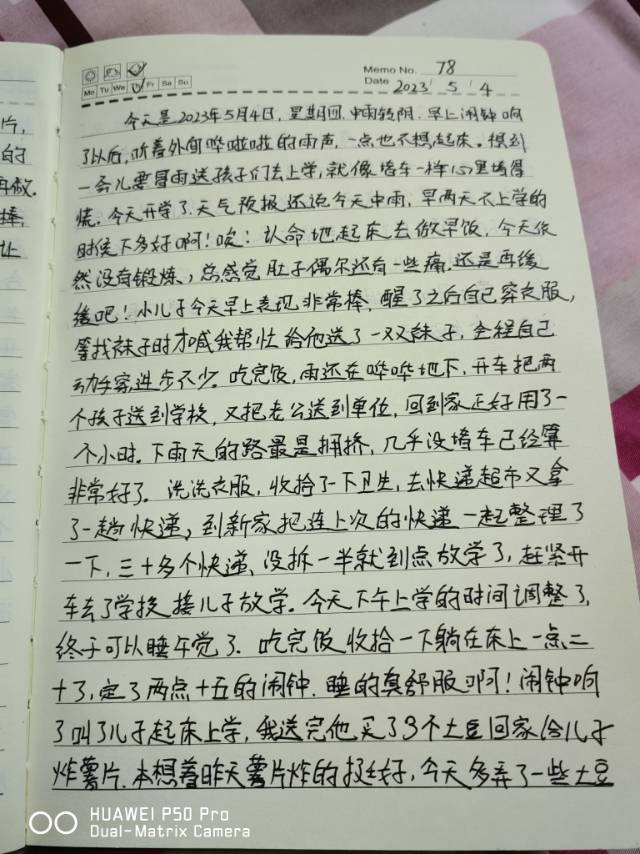 Memo No. 78
Mo Tu We Th Fr Sa Su
Date 2023 / 5 / 4
今天是2023年5月4日,星期四.中雨转阴.早上闹钟响
了以后,听着外面哗啦啦的雨声,一点也不想起床。想到
一会儿要冒雨送孩子们去上学,就像堵车一样心里堵得
慌。今天开学了.天气预报还说今天中雨,早两天不上学的
时候下多好啊!唉!认命地起床去做早饭,今天依
然没有锻炼、总感觉肚子偶尔还有一些痛.还是再缓
缓吧!小儿子今天早上表现非常棒,醒了之后自己穿衣服,
等找袜子时才喊我帮忙给他送了一双袜子,全程自己
动手穿,进步不少。吃完饭,雨还在哗哗地下,开车把两
个孩子送到学校,又把老公送到单位,回到家正好用了一
个小时.下雨天的路最是拥挤,几乎没堵车已经算
非常好了.洗洗衣服,收拾了一下卫生,去快递超市又拿
了一趟快递,到新家把连上次的快递一起整理了
一下,三十多个快递、没拆一半就到点放学了,赶紧开
车去了学校接儿子放学。今天下午上学的时间调整了,
终于可以睡午觉了.吃完饭收拾一下躺在床上一点二
十了,定了两点十五的闹钟.睡的真舒服啊!闹钟响
了叫了儿子起床上学,我送完他买了3个土豆回家给儿子
炸薯片.本想着昨天薯片炸的挺好,今天多弄了一些土豆
HUAWEI P50 Pro
Dual-Matrix Camera
片,
的
再做.
棒,
让